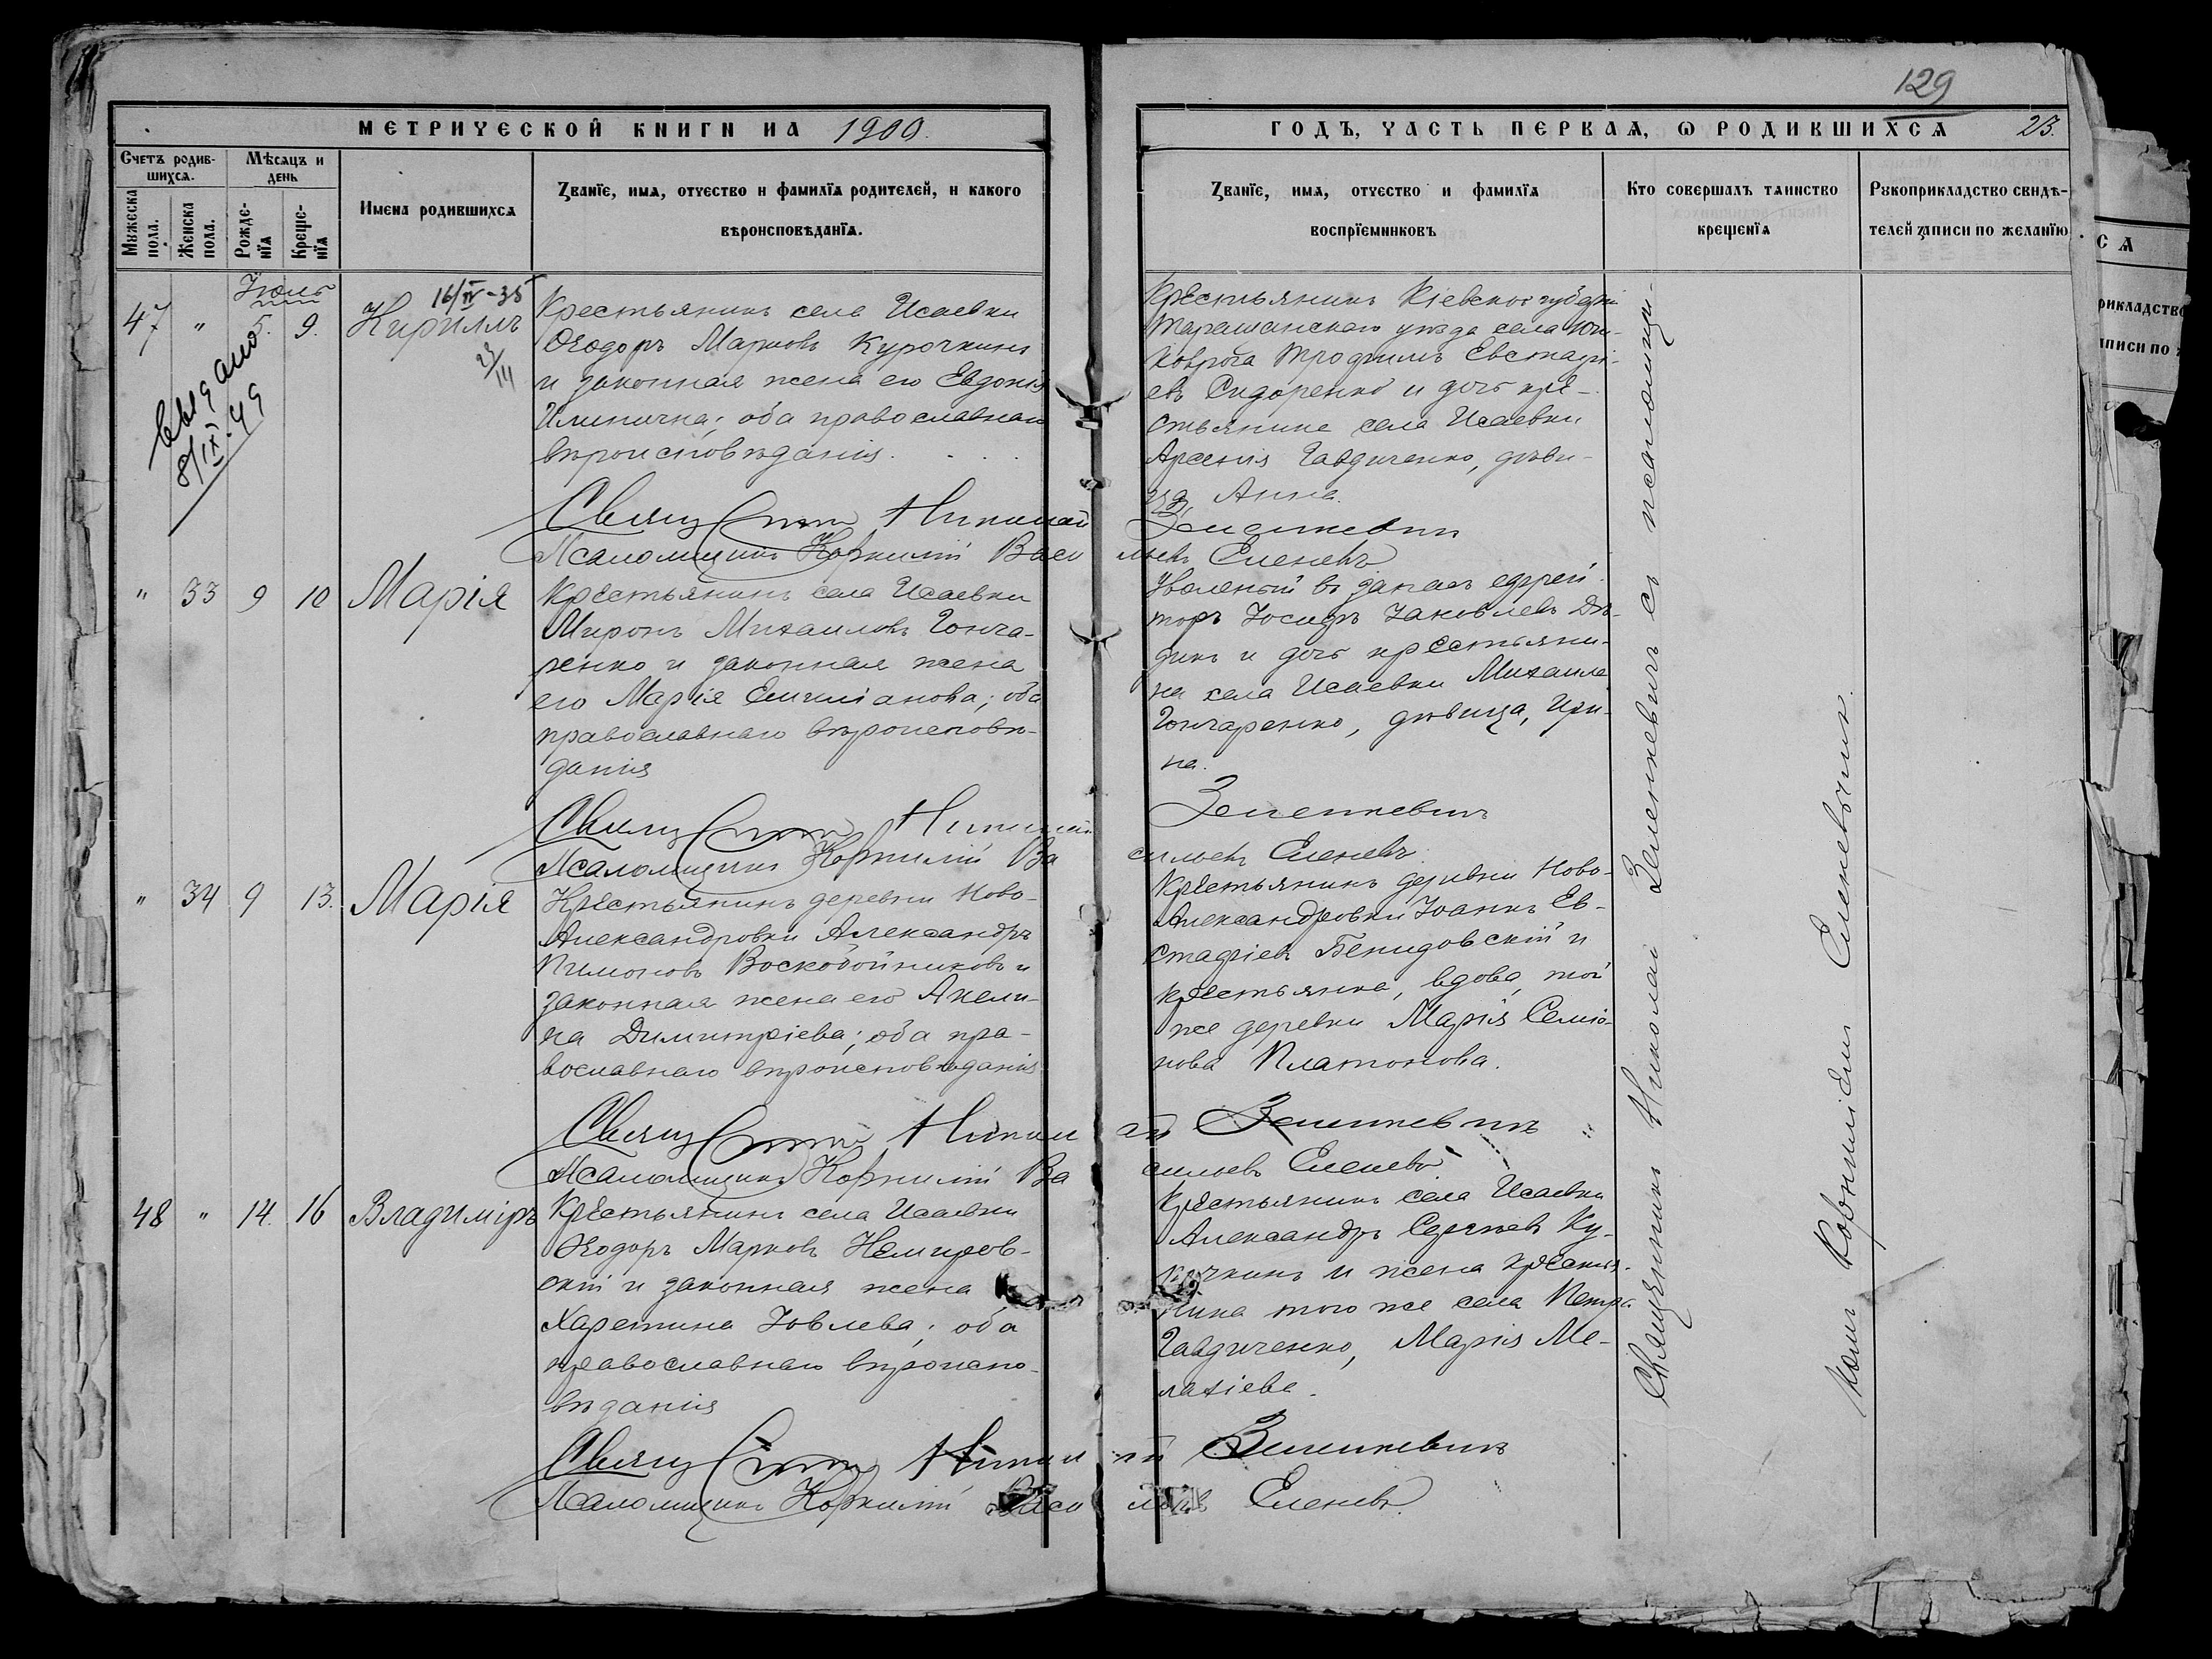 129
МЕТРИЧЕСКОЙ КНИГИ НА 1900.
ГОДЪ, ЧАСТЬ ПЕРВАЯ, Ѡ РОДИВШИХСЯ 23.
Счетъ родив-
шихся.
Мѣсяцъ и
день
Мужеска
пола.
Женска
пола.
Рожде-
нія
Креще-
нія
Имена родившихся
Званіе, имя, отчество и фамилія родителей, и какого
вѣроисповѣданія.
Званіе, имя, отчество и фамилія
воспріемниковъ
Кто совершалъ таинство
крещенія
Рукоприкладство свидѣ-
телей записи по желанію
Іюль
47 " 5. 9. Кириллъ
16/IV-35
8/IX 49
Крестьянинъ села Исаевки
Ѳеодоръ Марковъ Курочкинъ
и законная жена его Евдокія
оба православнаго
вѣроисповѣданія.
Крестьянинъ Кіевской губерніи
Таращанскаго уѣзда села
Трофимъ Евстафі-
евъ Сидоренко и дочь кре-
стьянина села Исаевки
Арсенія Гавдиченко, дѣви-
ца Анна.
Священ Николай Зеленкевичъ
Псаломщикъ Корнилій Василь
евъ Еленевъ
" 33 9 10 Марія
Крестьянинъ села Исаевки
Миронъ Михаиловъ Гонча-
ренко и законная жена
его Марія Емиліанова; оба
православнаго вѣроисповѣ-
данія
Уволеный въ запасъ ефрей-
торъ Іосифъ Іаковлевъ Дѣ-
динъ и дочь крестьяни-
на села Исаевки Михаила
Гончаренко, дѣвица, Ири-
на.
Священ Николай Зеленкевичъ
Псаломщикъ Корнилій Ва
сильевъ Еленевъ
" 34 9 13. Марія
Крестьянинъ деревни Ново-
Александровки Александръ
Пимоновъ Воскобойниковъ и
законная жена его Акели-
на Димитріева; оба пра-
вославнаго вѣроисповѣданія
Крестьянинъ деревни Ново-
Александровки Іоаннъ Ев-
стафіевъ Бенидовскій и
крестьянка, вдова, той
же деревни Марія Семіо-
нова Платонова.
Священ Никол ай Зеленкевичъ
Псаломщикъ Корнилій Ва
сильевъ Еленевъ
48 " 14. 16 Владиміръ
Крестьянинъ села Исаевки
Ѳеодоръ Марковъ Немиров-
скій и законная жена
Харетина Іовлева; оба
православнаго вѣроиспо-
вѣданія
Крестьянинъ села Исаевки
Александръ Сергѣевъ Ку-
рочкинъ и жена крестья-
нина того же села Петра
Гавдиченко, Марія Ме-
лахіева.
Священ Никол ай Зеленкевичъ
Псаломщикъ Корнилій Васи льевъ Еленевъ.
Священникъ Николай Зеленкевичъ съ псаломщи-
комъ Корниліемъ Еленевымъ.